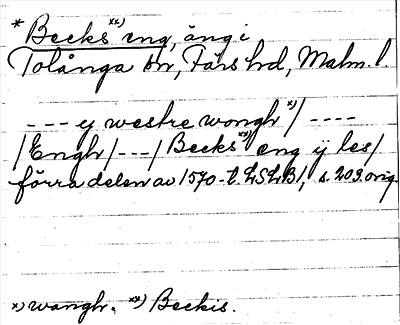 * Becks xx) eng, äng i
Tolånga sn, Färs hd, Malm. l.
--- ij westre wongh x)/ ----
/Engh/---/ Becks xx) eng ij les/
förra delen av 1570-t. LSLB1, s. 209. orig.
x) wangh. xx) Beckis.